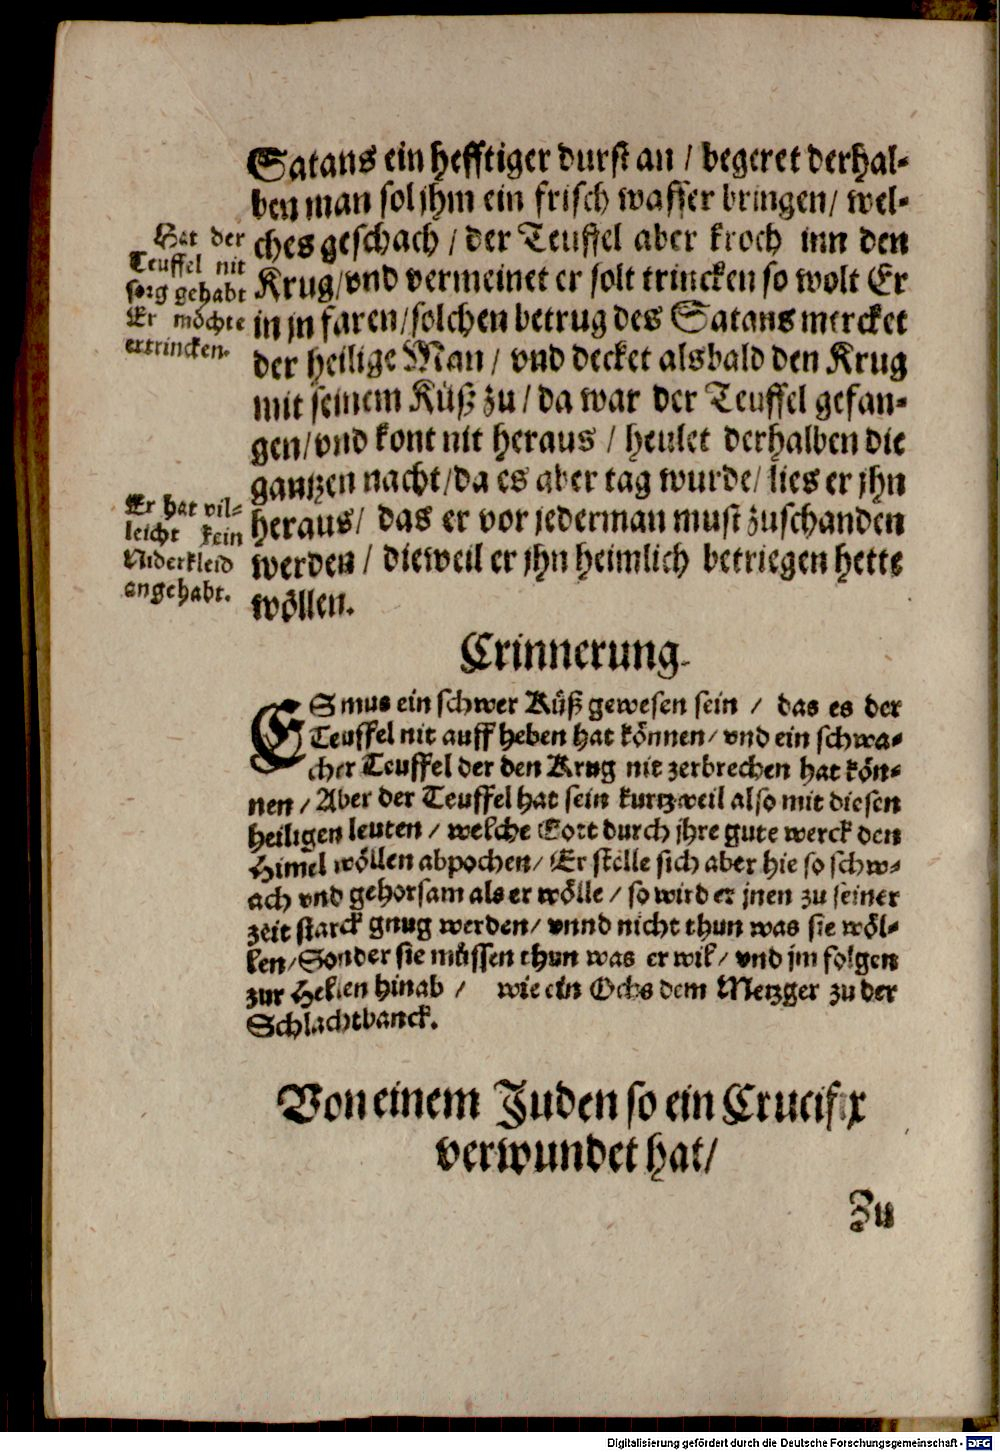 Satans ein hefftiger durst an / begeret derhal-
ben man sol jhm ein frisch wasser bringen / wel-
ches geschach / der Teuffel aber kroch inn den
Krug / vnd vermeinet er solt trincken so wolt Er
in jn faren / solchen betrug des Satans mercket
der heilige Man / vnd decket alsbald den Krug
mit seinem Küß zu / da war der Teuffel gefan-
gen / vnd kont nit heraus / heulet derhalben die
gantzen nacht / da es aber tag wurde / lies er jhn
heraus / das er vor jederman must zuschanden
werden / dieweil er jhn heimlich betriegen hette
wöllen.
Hat der
Teuffel nit
sorg gehabt
Er möchte
ertrincken.
Er hat vil-
leicht kein
Niderkleid
angehabt.
Erinnerung.
ES mus ein schwer Küß gewesen sein / das es der
Teuffel nit auff heben hat können / vnd ein schwa-
cher Teuffel der den Krug nit zerbrechen hat kön-
nen / Aber der Teuffel hat sein kurtzweil also mit diesen
heiligen leuten / welche Gott durch jhre gute werck den
Himel wöllen abpochen / Er stelle sich aber hie so schw-
ach vnd gehorsam als er wölle / so wird er jnen zu seiner
zeit starck gnug werden / vnnd nicht thun was sie wöl-
len / Sonder sie müssen thun was er wil / vnd jm folgen
zur Hellen hinab / wie ein Ochs dem Metzger zu der
Schlachtbanck.
Von einem Juden so ein Crucifix
verwundet hat /
Zu
Digitalisierung gefördert durch die Deutsche Forschungsgemeinschaft - DFG